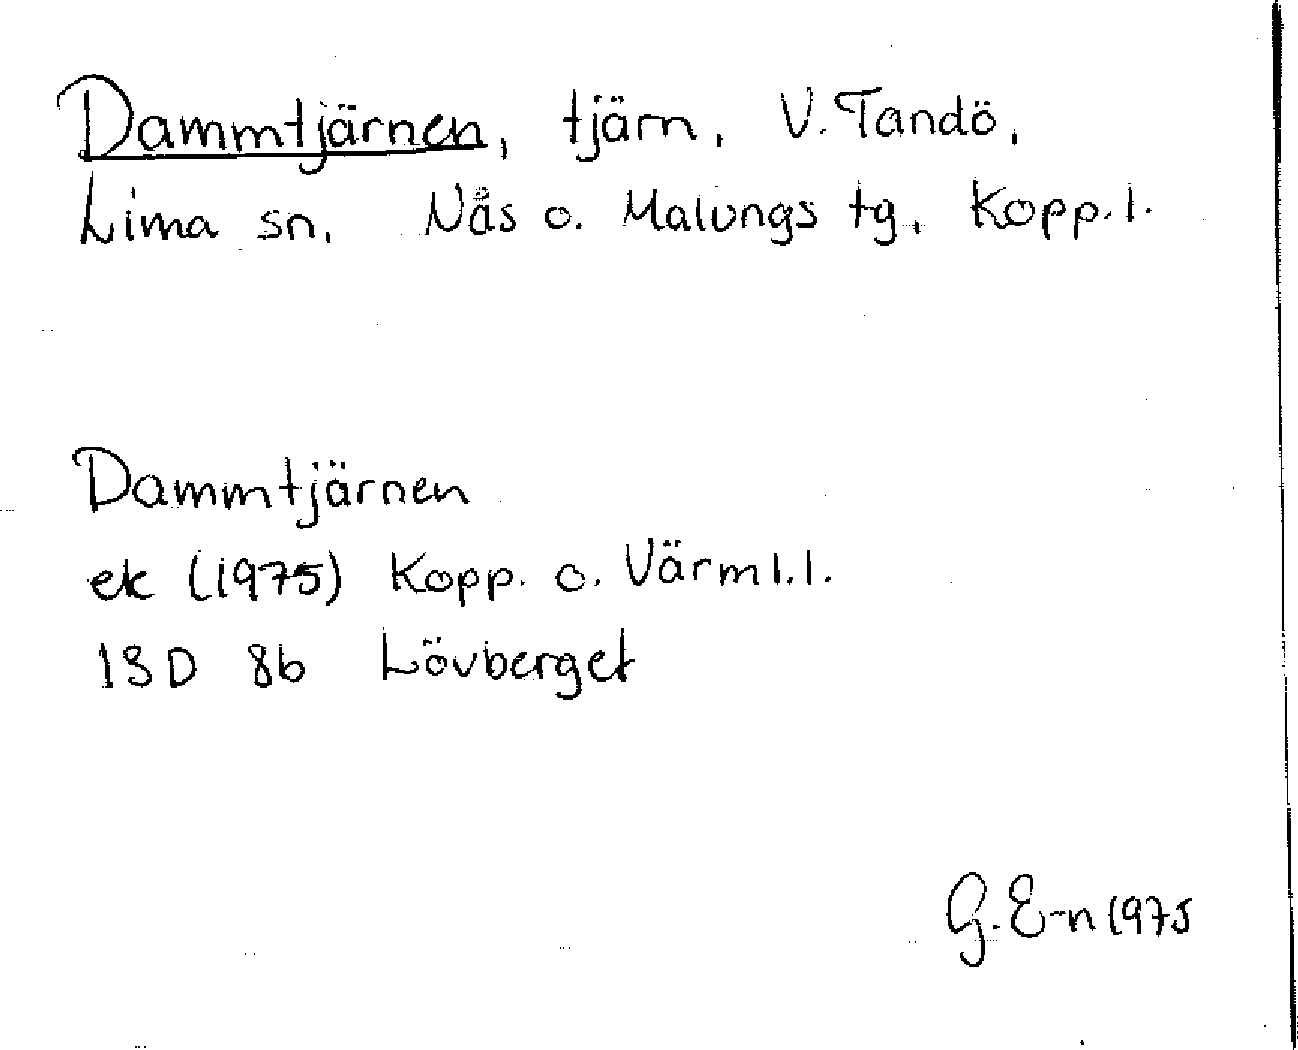 Dammtjärnen, tjärn, V. Tandö,
Lima sn. Nås o. Malungs tg, Kopp. l.
Dammtjärnen
ek (1975) Kopp. o. Värml. l.
13D 8b Lövberget
G. E-n 1975